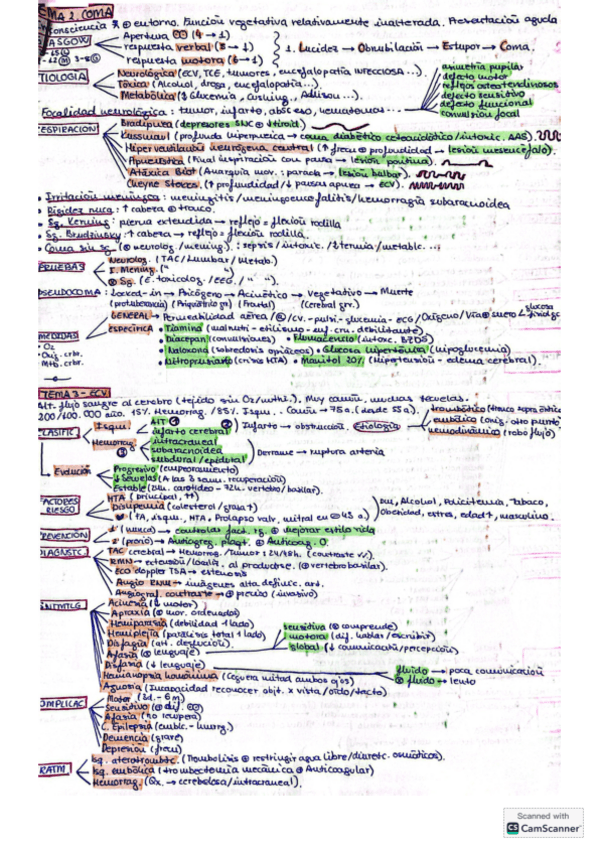 TEMA 2. COMA
consciencia entorno. Función vegetativa relativamente inalterada. Presentación aguda
GLASGOW
Apertura (4 → 1)
respuesta verbal (5 → 1)
respuesta motora (6 → 1)
1. Lucidez → Obnubilación → Estupor → Coma.
ETIOLOGIA
Neurológica (ECV, TCE, tumores, encefalopatía INFECCIOSA ...).
Tóxica (Alcohol, droga, encefalopatía...).
Metabólica (Glucemia, Cushing, Addison...).
asimetría pupilas
defecto motor
reflejos osteotendinosos
defecto sensitivo
defecto funcional
convulsión focal
Focalidad neurológica: tumor, infarto, absceso, hematomas...
RESPIRACION
Bradipnea (depresores SNC)
Kussmaul (profunda hiperpneica → coma diabético cetoacidótico/intoxic. AAS).
Hiperventilación neurógena central (↑ frecu profundidad → lesión mesencéfalo).
Apneustica (Final inspiración con pausa → lesión pontina).
Atáxica Biot (Anarquía mov. : parada → lesión bulbar).
Cheyne Stokes. (↑ profundidad/↓ pausas apnea → ECV).
• Irritación meníngea: meningitis/meningoencefalitis/hemorragia subaracnoidea
• Rigidez nuca: ↑ cabeza tronco.
• Sg. Kerning: pierna extendida → reflejo = flexión rodilla
• Sg. Brudzinsky: ↑ cabeza → reflejo = flexión rodilla.
• Coma sin sg. (neurolog./mening.): sepsis/intoxic. /metablc. ...
PRUEBAS
Neurolog. (TAC/Lumbar/Metab.)
I. Mening. (" ")
Sg. (E. toxicolog. /EEG. /" ").
PSEUDOCOMA: Locked-in → Psicógeno → Acinético → Vegetativo → Muerte
(protuberancia) (Psiquiátrico) (Frontal) (cerebral grv.)
MEDIDAS
• O2
• Orig. crbr.
• Mtb. crbr.
GENERAL → Permeabilidad aérea/ /cv. - pulsi. - glucemia - ECG/Oxígeno/Vía suero glucosa
ESPECIFICA
Tiamina (malnutri - etilismo - enf. crn. debilitante).
• Diacepan (convulsiones) • Flumacenilo (intoxc. BZDS)
• Naloxona (sobredosis opiáceos) • Glucosa hipertónica (hipoglucemia)
• Nitroprusiato (crisis HTA) • Manitol 20% (Hipertensión - edema cerebral).
TEMA 3 - ECV
Alt. flujo sangre al cerebro (tejido sin O2/nutri.). Muy común. muchas secuelas.
200/100.000 año. 15% Hemorrag. / 85% Isqu. Común → 75a. (desde 55a).
CLASIFIC
Isqu.
AIT
infarto cerebral
Infarto → obstrucción. Etiología
trombótico (tronco supra aórtico)
embólica (orig. otro punto)
hemodinámico (robo flujo)
Hemorrag.
intracraneal
subaracnoidea
subdural/epidural
Derrame → ruptura arteria
Evolución
Progresivo (empeoramiento)
↓ Secuelas (A las 3 sem. recuperación)
Estable (24h. carotideo - 72h. vertebro/basilar).
FACTORES RIESGO
HTA (principal, ++)
Dislipemia (colesterol/grasa↑)
(FA, isqu. HTA, Prolapso valv. mitral en 45 a)
DM, Alcohol, Policitemia, Tabaco,
Obesidad, estres, edad↑, masculino.
PREVENCIÓN
1ª (nunca) → controlar fact. rg. mejorar estilo vida
2ª (previo) → Antiagreg. plaqt. Anticoag. O.
DIAGNSTC.
TAC cerebral → Hemorrag./Tumor: 24/48h. (contraste v.).
RMN → extensión/localiz. al producirse. (vertebro basilar).
Eco doppler TSA → estenosis
Angio RNM → imágenes alta definic. art.
Angiograf. contraste → preciso (invasivo)
SINTMTLG
Acinesia (↓ motor)
Apraxia (mov. ordenados)
Hemiparesia (debilidad 1 lado)
Hemiplejia (parálisis total 1 lado)
Disfagia (alt. deglución).
Afasia (lenguaje)
Disfasia (↓ lenguaje)
Hemianopsia homónima (Ceguera mitad ambos ojos)
Agnosia (Incapacidad reconocer objt. x vista/oído/tacto)
sensitiva (comprende)
motora (dif. hablar/escribir)
global (↓ comunicación/percepción)
fluido → poca comunicación
fluido → lento
COMPLICAC
Motor (3d. - 6m)
Sensitivo
Afasia (no recupera)
C. Epilepsia (emblc. - hmorg.)
Demencia (grave)
Depresión (frecu)
TRATM
Isq. aterotrombtc. (Trombolisis restringir agua libre/diuretc. osmóticos).
Isq. embólica (trombectomía mecánica Anticoagular)
Hemorrag. (Qx. → cerebelosa/intracraneal).
Scanned with
CS CamScanner